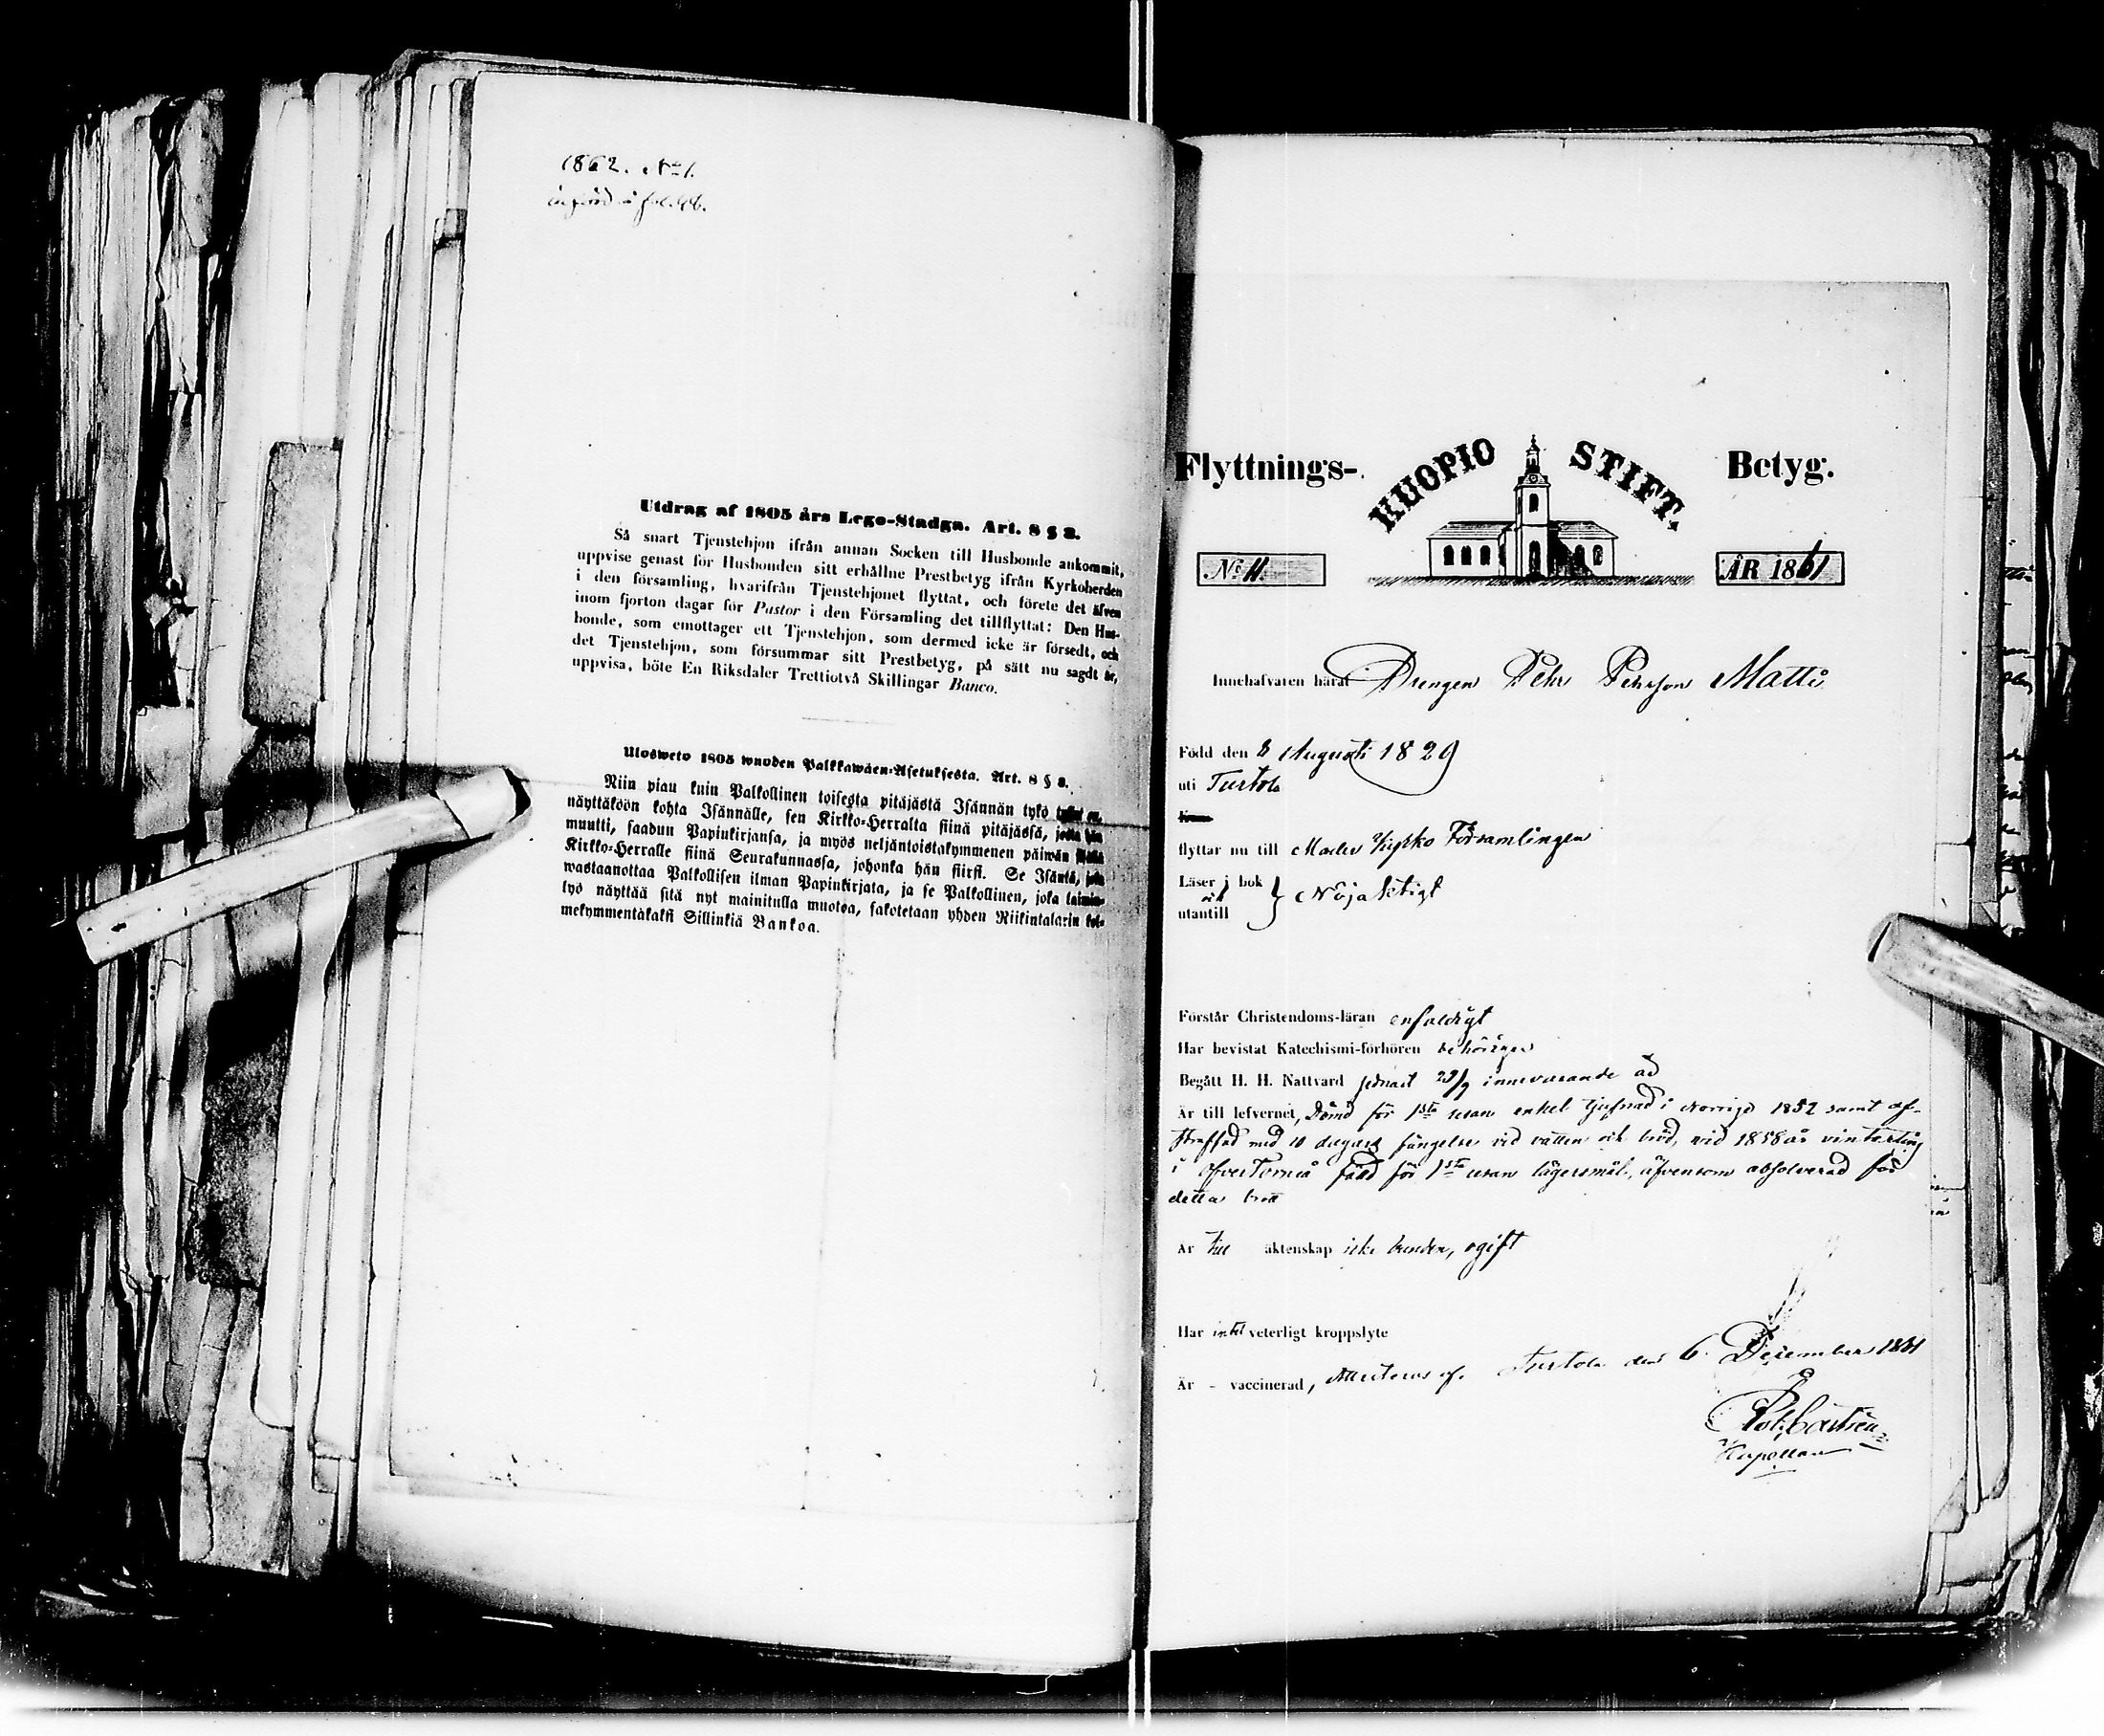 1862. No 1.
införd å fol. 46.
Utdrag af 1805 års Lego-Stadga. Art. 8 § 2.
Så snart Tjenstehjon ifrån annan Socken till Husbonde ankommit,
uppvise genast för Husbonden sitt erhållne Prestbetyg ifrån Kyrkoherden
i den församling, hvarifrån Tjenstehjonet flyttat, och förete det äfven
inom fjorton dagar för Pastor i den Församling det tillflyttat: Den Hus-
bonde, som emottager ett Tjenstehjon, som dermed icke är försedt, och
det Tjenstehjon, som försummar sitt Prestbetyg, på sätt nu sagdt är,
uppvisa, böte En Riksdaler Trettiotvå Skillingar Banco.
Ulosweto 1805 wuoden Palkkawäen-Asetuksesta. Art. 8 § 2.
Niin piau kuin Palkollinen toisesta pitäjästä Isännän tykö tullut on,
näyttäköön kohta Isännälle, sen Kirkko-Herralta siinä pitäjässä, josta hän
muutti, saadun Papinkirjansa, ja myös neljäntoistakymmenen päiwän
Kirkko-Herralle siinä Seurakunnassa, johonka hän siirsi. Se Isäntä, joka
wastaanottaa Palkollisen ilman Papinkirjata, ja se Palkollinen, joka laimin-
lyö näyttää sitä nyt mainitulla muotoa, sakotetaan yhden Riikintalarin kol-
mekymmentäkaksi Sillinkiä Bankoa.
Flyttnings- KUOPIO STIFT. Betyg.
No 11. ÅR 1861
Innehafvaren häraf Drengen Pehr Pehrson Matti
Född den 8 Augusti 1829
uti Turtola
flyttar nu till Kyrko Församlingen
Läser i bok
och
utantill } Nöjaktigt
Förstår Christendoms-läran enfaldigt
Har bevistat Katechismi-förhören behörigen
Begått H. H. Nattvard sednast 29/9 innevarande år
Är till lefvernet, Dömd för 1sta resan enkel tjufnad i Norrige 1852 samt af-
straffad med 10 dagars fängelse vid vatten och bröd, vid 1858 års vinterting
i ÖfverTorneå fäld för 1sta resan lägersmål, äfvensom absolverad för
detta brott
Är till äktenskap icke bunden, ogift
Har intet veterligt kroppslyte
Är - vaccinerad, Attesteras af. Turtola den 6 December 1861
Rob. Castrén
Kapellan